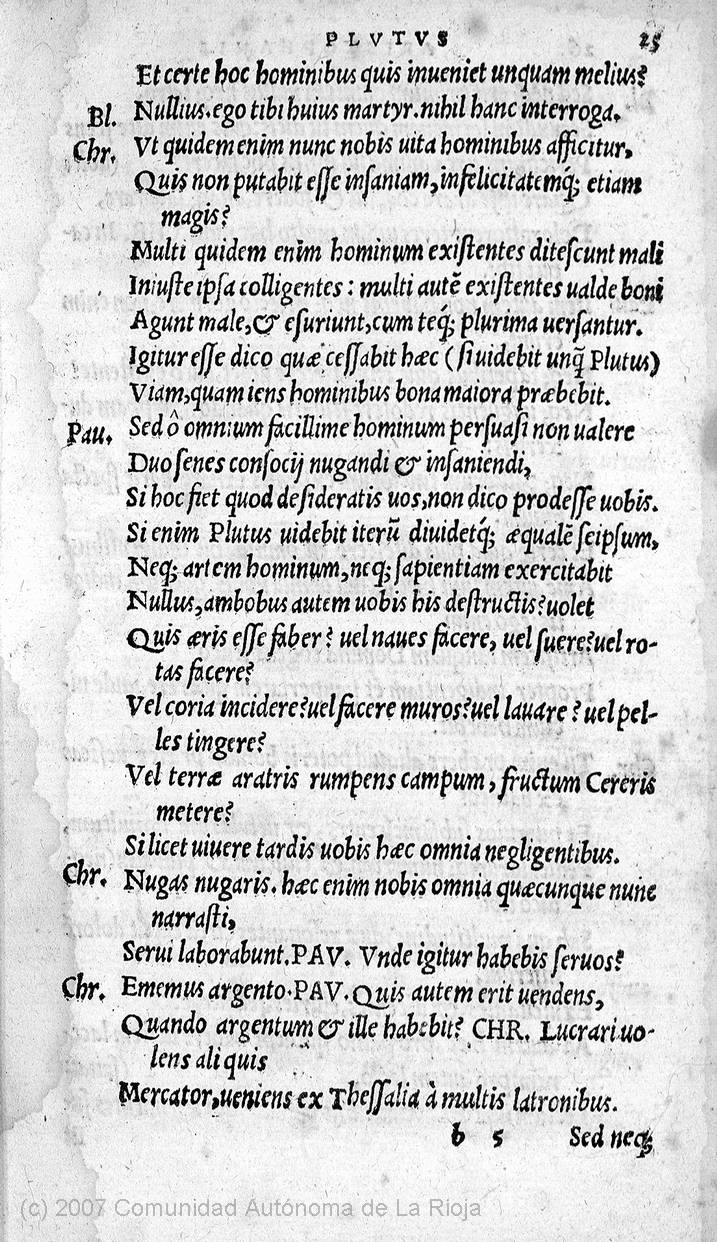 PLVTVS 25
Et certe hoc hominibus quis inueniet unquam melius?
Bl. Nullius. ego tibi huius martyr. nihil hanc interroga.
Chr. Vt quidem enim nunc nobis uita hominibus afficitur,
Quis non putabit esse insaniam, infelicitatemq́; etiam
magis?
Multi quidem enim hominum existentes ditescunt mali
Iniuste ipsa colligentes: multi autē existentes ualde boni
Agunt male, & esuriunt, cum teq́; plurima uersantur.
Igitur esse dico quæ cessabit hæc (si uidebit unq̃ Plutus)
Viam, quam iens hominibus bona maiora præbebit.
Pau. Sed ô omnium facillime hominum persuasi non ualere
Duo senes consocij nugandi & insaniendi,
Si hoc fiet quod desideratis uos, non dico prodesse uobis.
Si enim Plutus uidebit iterū diuidetq́; æqualē seipsum,
Neq; artem hominum, neq; sapientiam exercitabit
Nullus, ambobus autem uobis his destructis? uolet
Quis æris esse faber? uel naues facere, uel suere? uel ro-
tas facere?
Vel coria incidere? uel facere muros? uel lauare? uel pel-
les tingere?
Vel terræ aratris rumpens campum, fructum Cereris
metere?
Si licet uiuere tardis uobis hæc omnia negligentibus.
Chr. Nugas nugaris. hæc enim nobis omnia quæcunque nunc
narrasti,
Serui laborabunt. PAV. Vnde igitur habebis seruos?
Chr. Ememus argento. PAV. Quis autem erit uendens,
Quando argentum & ille habebit? CHR. Lucrari uo-
lens aliquis
Mercator, ueniens ex Thessalia à multis latronibus.
b 5 Sed neq;
(c) 2007 Comunidad Autónoma de La Rioja